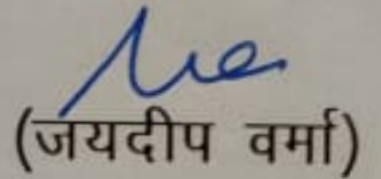 (जयदीप वर्मा)